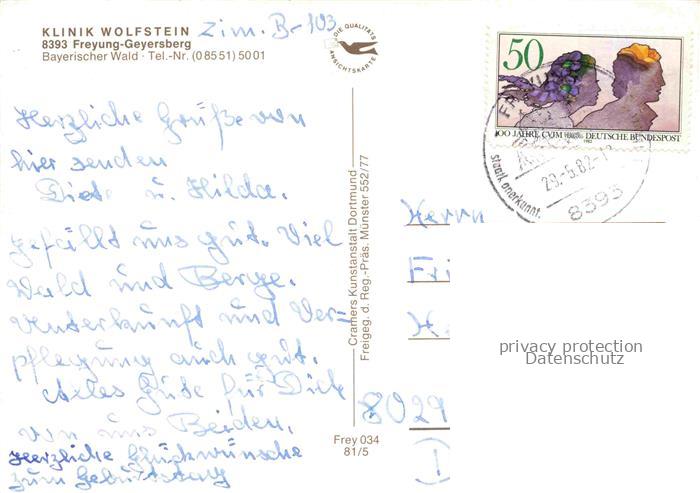 KLINIK WOLFSTEIN
8393 Freyung-Geyersberg
Bayerischer Wald · Tel.-Nr. (08551) 5001
Zim. B-103
DIE QUALITÄTS
ANSICHTSKARTE
50
100 JAHRE CVJM DEUTSCHE BUNDESPOST
1982
staatl. anerkannt.
29.-6.82-1
8393
Herzliche Grüße von
hier senden
Diete u. Hilda.
gefällt uns gut. Viel
Wald und Berge.
Unterkunft und Ver=
pflegung auch gut.
Alles Gute für Dich
von uns Beiden.
Herzliche Glückwünsche
zum Geburtstag
Cramers Kunstanstalt Dortmund
Freigeg. d. Reg.-Präs. Münster 552/77
Frey 034
81/5
Herrn
8029
privacy protection
Datenschutz